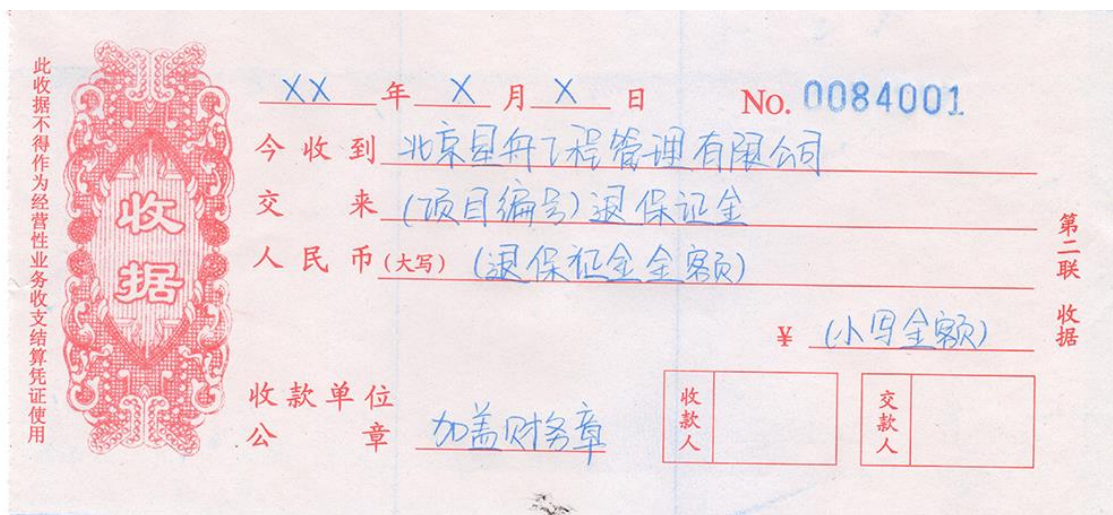 此收据不得作为经营性业务收支结算凭证使用
收据
XX年X月X日 No. 0084001
今收到 北京星舟工程管理有限公司
交来 (项目编号)退保证金
人民币(大写) (退保证金金额)
¥ (小写金额)
收款单位
公章 加盖财务章
收款人
交款人
第二联 收据